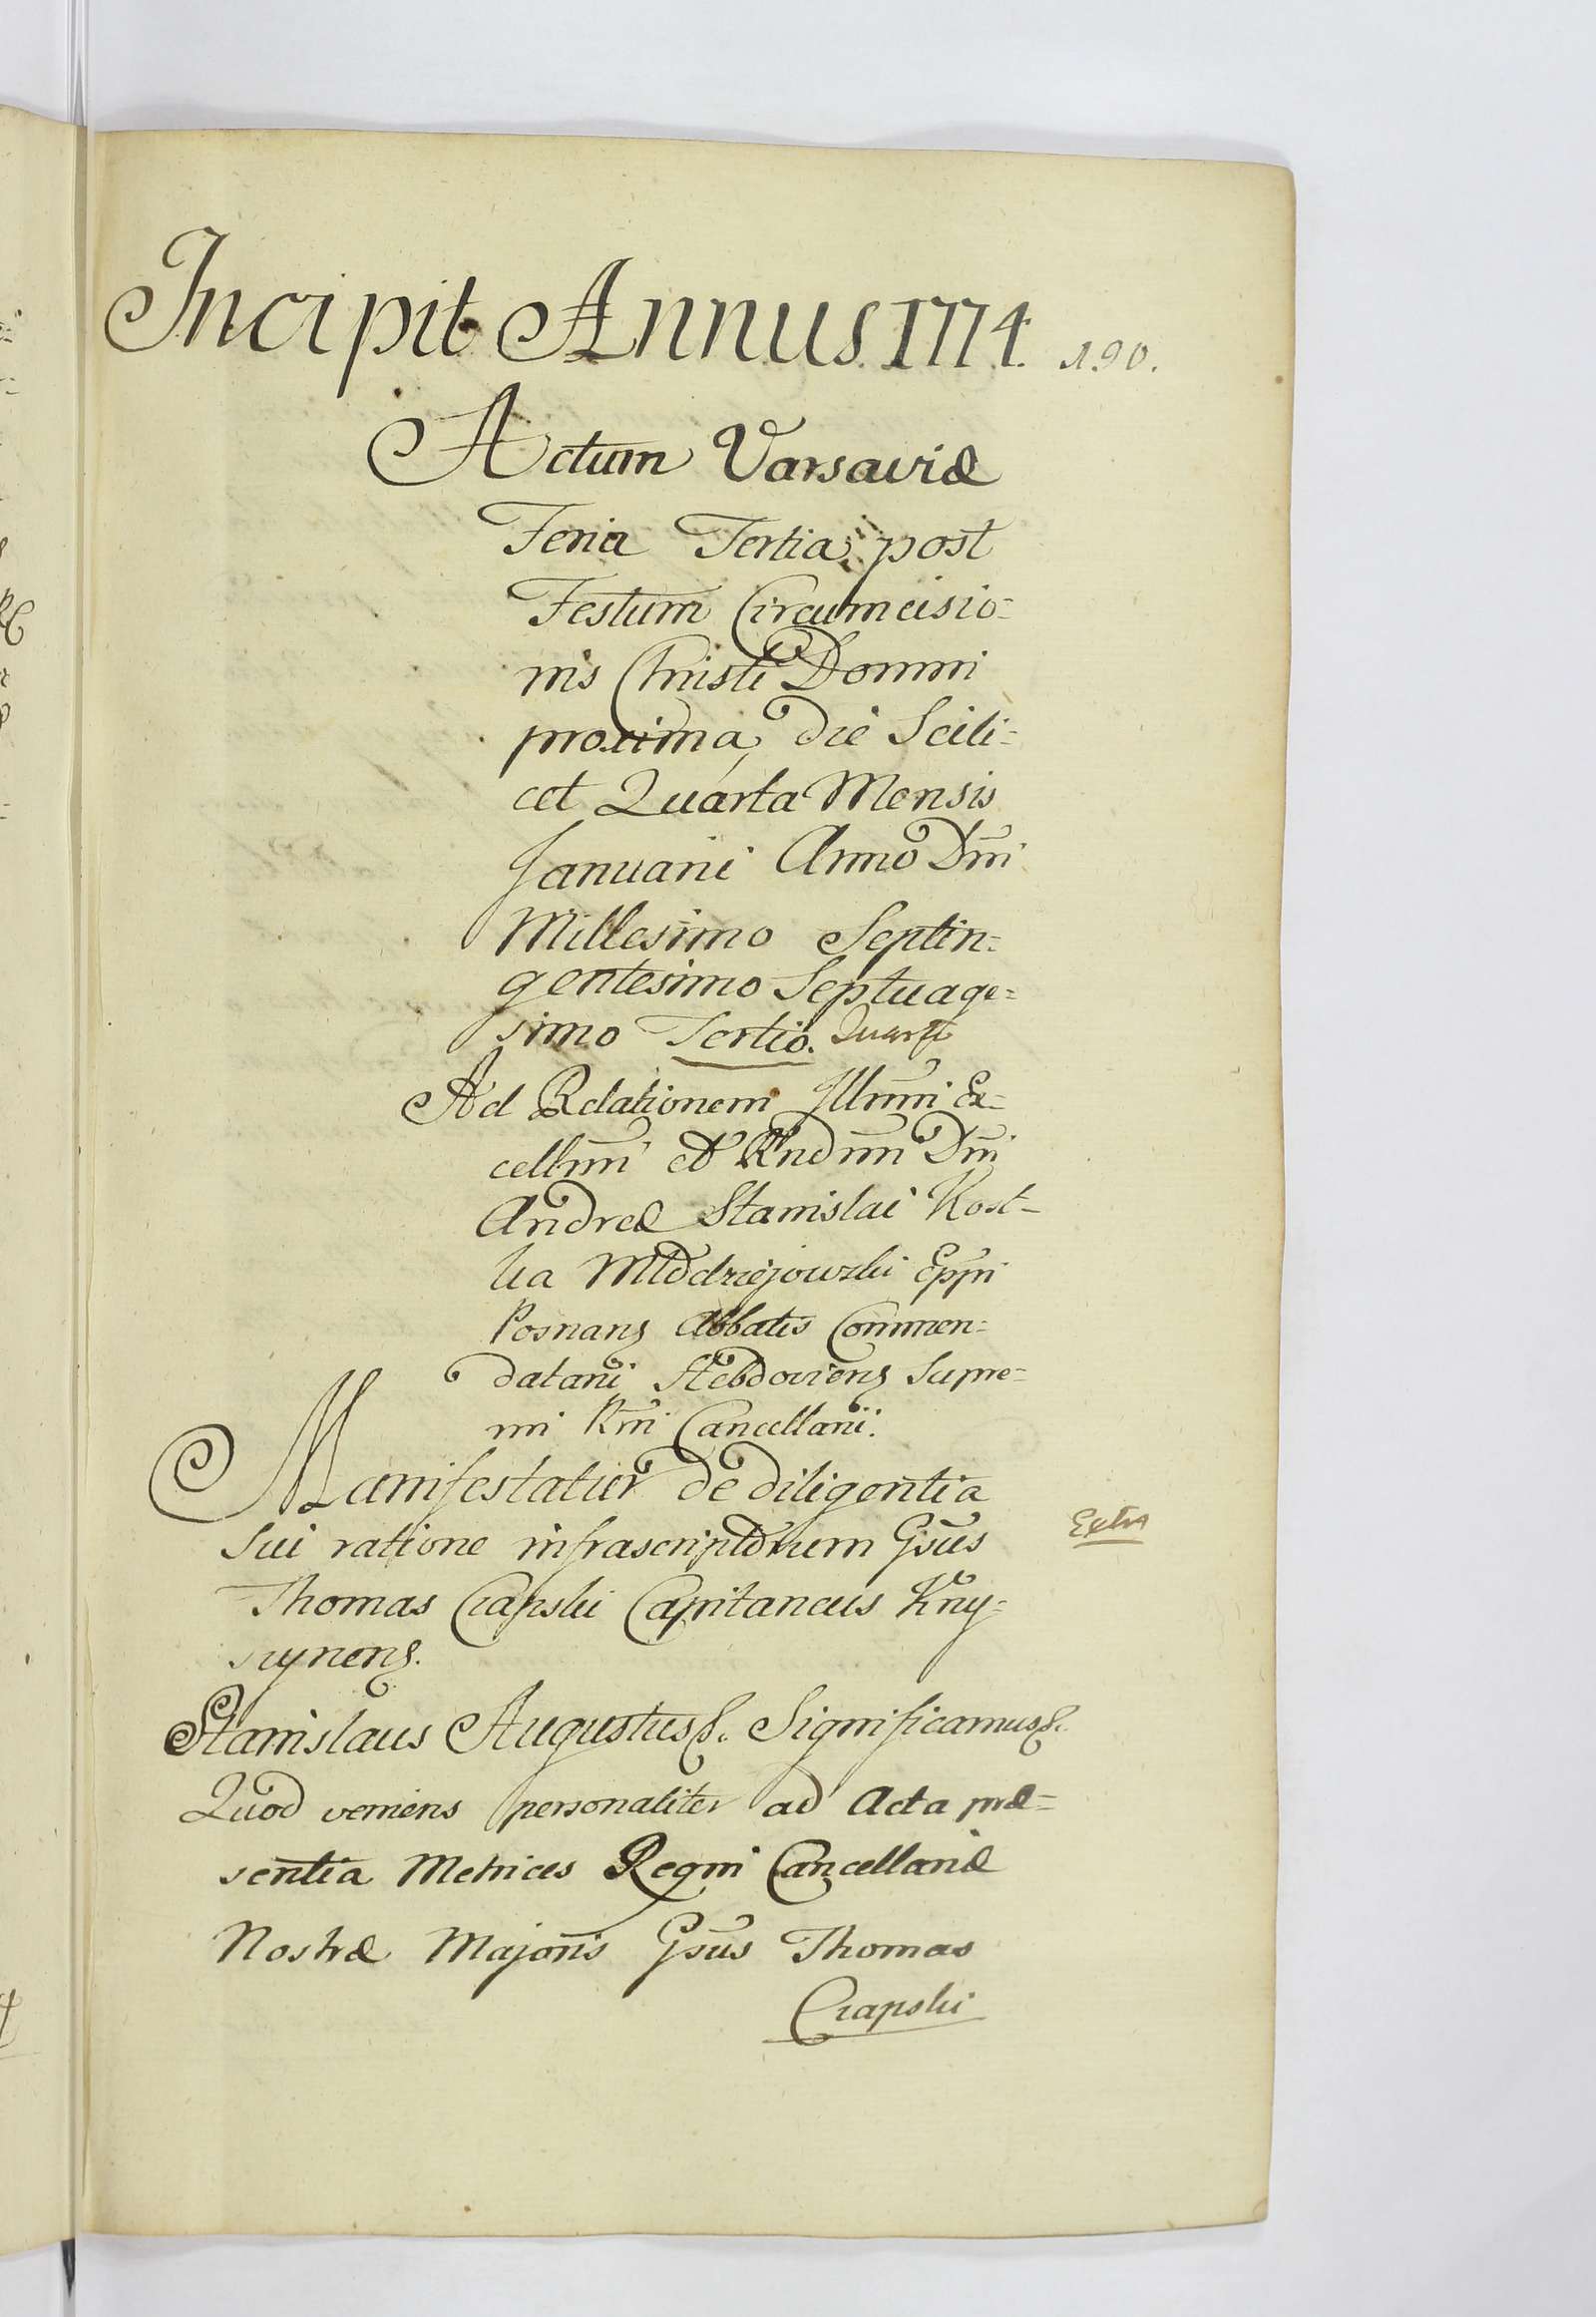 Incipit Annus. 1774. 190.
Actum Varsaviæ
Feria Tertia post
Festum Circumcisio=
nis Christi Domini
proxima, die Scili=
cet Quarta Mensis
Januarii Anno Dni
Millesimo Septin=
gentesimo Septuage=
simo Tertio. Quarto
Ad Relationem Illmi Ex=
cellmi et Rndmi Dni
Andreæ Stanislai Kost=
ka Młodziejowski Eppi
Posnans Abbatis Commen=
datarii Hebdoviens Supre=
mi Rni Cancellarii.
Manifestatur de diligentia
sui ratione infrascriptorum Gsus
Extra
Thomas Czapski Capitaneus Kny=
szynens.
Stanislaus Augustus &. Significamus &.
Quod veniens personaliter ad Acta præ=
sentia Metrices Regni Cancellariæ
Nostræ Majoris Gsus Thomas
Czapski